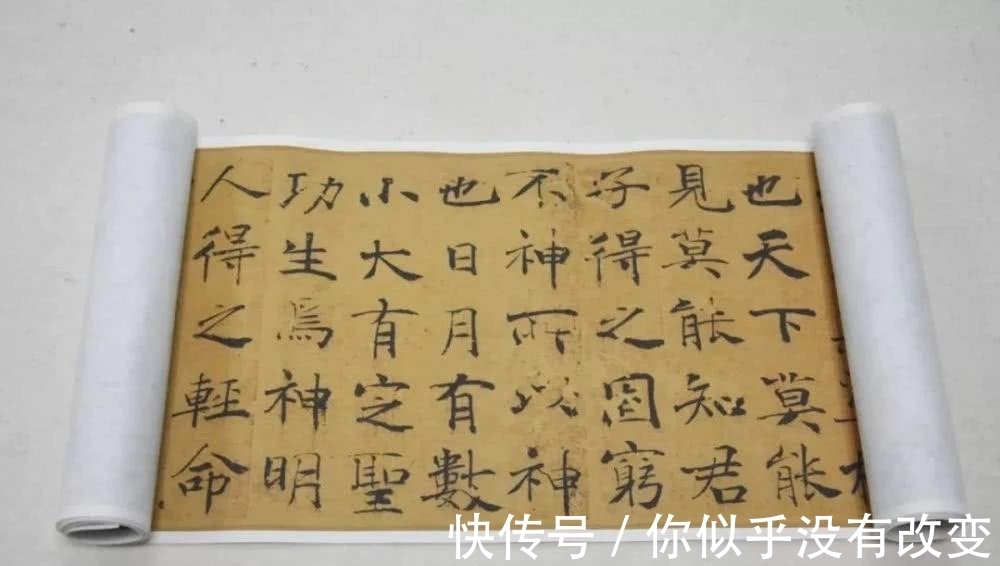 也天下莫能
見莫能知君
子得之固窮
不神所以神
也日月有數
小大有定聖
功生焉神明
人得之輕命
快传号 / 你似乎没有改变